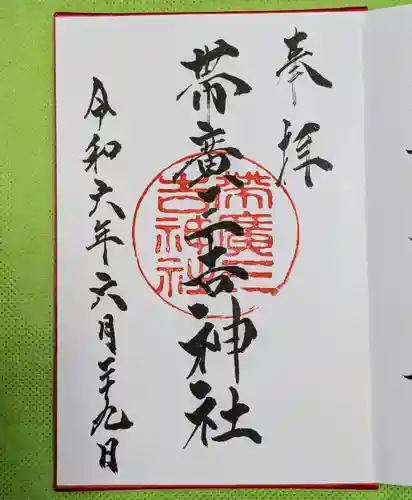 奉拝
帯廣三吉神社
帯廣三吉神社
令和六年六月二十九日